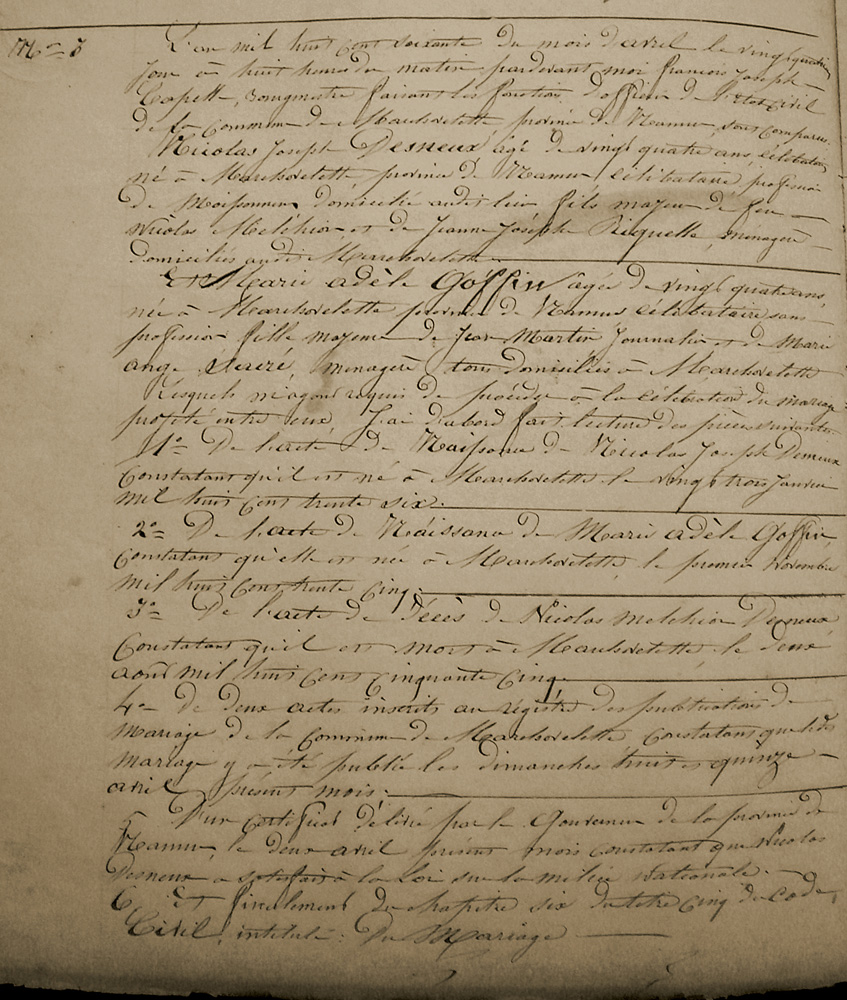 N° 3
L'an mil huit cent soixante du mois d'avril le vingt quatrième
jour à huit heures du matin pardevant moi françois Joseph
Capelle, Bourgmestre faisant les fonctions d'officier de l'état civil
de la Commune de Marchovelette province de Namur, sont comparus
Nicolas Joseph Desneux âgé de vingt quatre ans, célibataire
né à Marchovelette province de Namur célibataire, profession
de Moissonneur domicilié audit lieu fils majeur de feu
Nicolas Melchior et de Jeanne Josèphe Piquelle, ménagère
domiciliés audit Marchovelette
Et Marie adèle Goffin âgée de vingt quatre ans,
née à Marchovelette province de Namur célibataire sans
profession fille majeure de Jean Martin Journalier et de Marie
ange Sacré, menagère tous domiciliés à Marchovelette
Lesquels m'ayant requis de procéder à la célébration du mariage
projeté entre eux, J'ai d'abord fait lecture des pièces suivantes
1° De l'acte de Naissance de Nicolas Joseph Desneux
Constatant qu'il est né à Marchovelette le vingt trois Janvier
mil huit cent trente six.
2° De l'acte de Naissance de Marie adèle Goffin,
Constatant qu'elle est née à Marchovelette, le premier Novembre
mil huit cent trente cinq.
3° De l'acte de Décès de Nicolas Melchior Desneux
Constatant qu'il est mort à Marchovelette, le deux
août mil huit cent cinquante cinq.
4° De deux actes inscrits au régistre des publications de
Mariage de la Commune de Marchovelette Constatant que ledit
Mariage y a été publié les dimanches huit et quinze
avril présent mois.
5 D'un certificat délivré par le Gouverneur de la province de
Namur, le deux avril présent mois constatant que Nicolas
Desneux a satisfait à la Loi sur la milice Nationale.
6 Et finalement du chapitre six du titre cinq du code
Civil, intitulé: Du Mariage